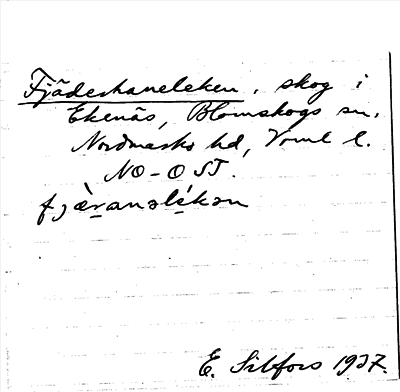 Fjäderhaneleken, skog i
Ekenäs, Blomskogs sn,
Nordmarks hd, Vrml l.
NO-OST.
fjæ̀ranəlékən
E. Silfors 1937.